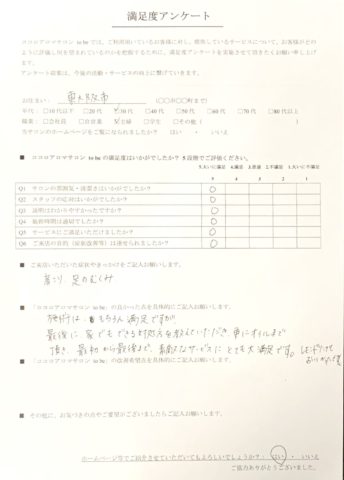 満足度アンケート
ココロアロマサロン to be では、ご利用頂いているお客様に対し、提供しているサービスについて、お客様がどの
ように評価し何を望まれているのかを把握するために、満足度アンケートを実施させて頂きたくお願い申し上げ
ます。
アンケート結果は、今後の活動・サービスの向上に繋げていきます。
お住まい: 東大阪市 (○○市○○町まで)
年代: □10代以下 □20代 ☑30代 □40代 □50代 □60代 □70代 □80代以上
職業: □会社員 □自営業 ☑主婦 □学生 □その他( )
当サロンのホームページをご覧になられましたか? はい ・ いいえ
■ ココロアロマサロン to be の満足度はいかがでしたか? 5段階でご評価ください。
5.大いに満足 4.満足 3.普通 2.不満足 1.大いに不満足
5 4 3 2 1
Q1 サロンの雰囲気・清潔さはいかがでしたか? ○
Q2 スタッフの応対はいかがでしたか? ○
Q3 説明はわかりやすかったですか? ○
Q4 施術時間は適切でしたか? ○
Q5 サービスにご満足いただけましたか? ○
Q6 ご来店の目的(症状改善等)は達せられましたか? ○
■ ご来店いただいた症状やきっかけをご記入お願いします。
肩こり 足のむくみ
■ 「ココロアロマサロン to be」の良かった点を具体的にご記入お願いします。
施術は もちろん 満足ですが、
最後に 家でもできる対処方を教えていただき、車にオイルまで
頂き、最初から最後まで、素敵なサービスに とても大満足です。
■ 「ココロアロマサロン to be」の改善希望点を具体的にご記入お願いします。
■ その他に、お気づきの点やご要望がございましたらご記入お願いします。
ホームページ等でご紹介させていただいてもよろしいでしょうか?: はい ・ いいえ
ご協力ありがとうございました。